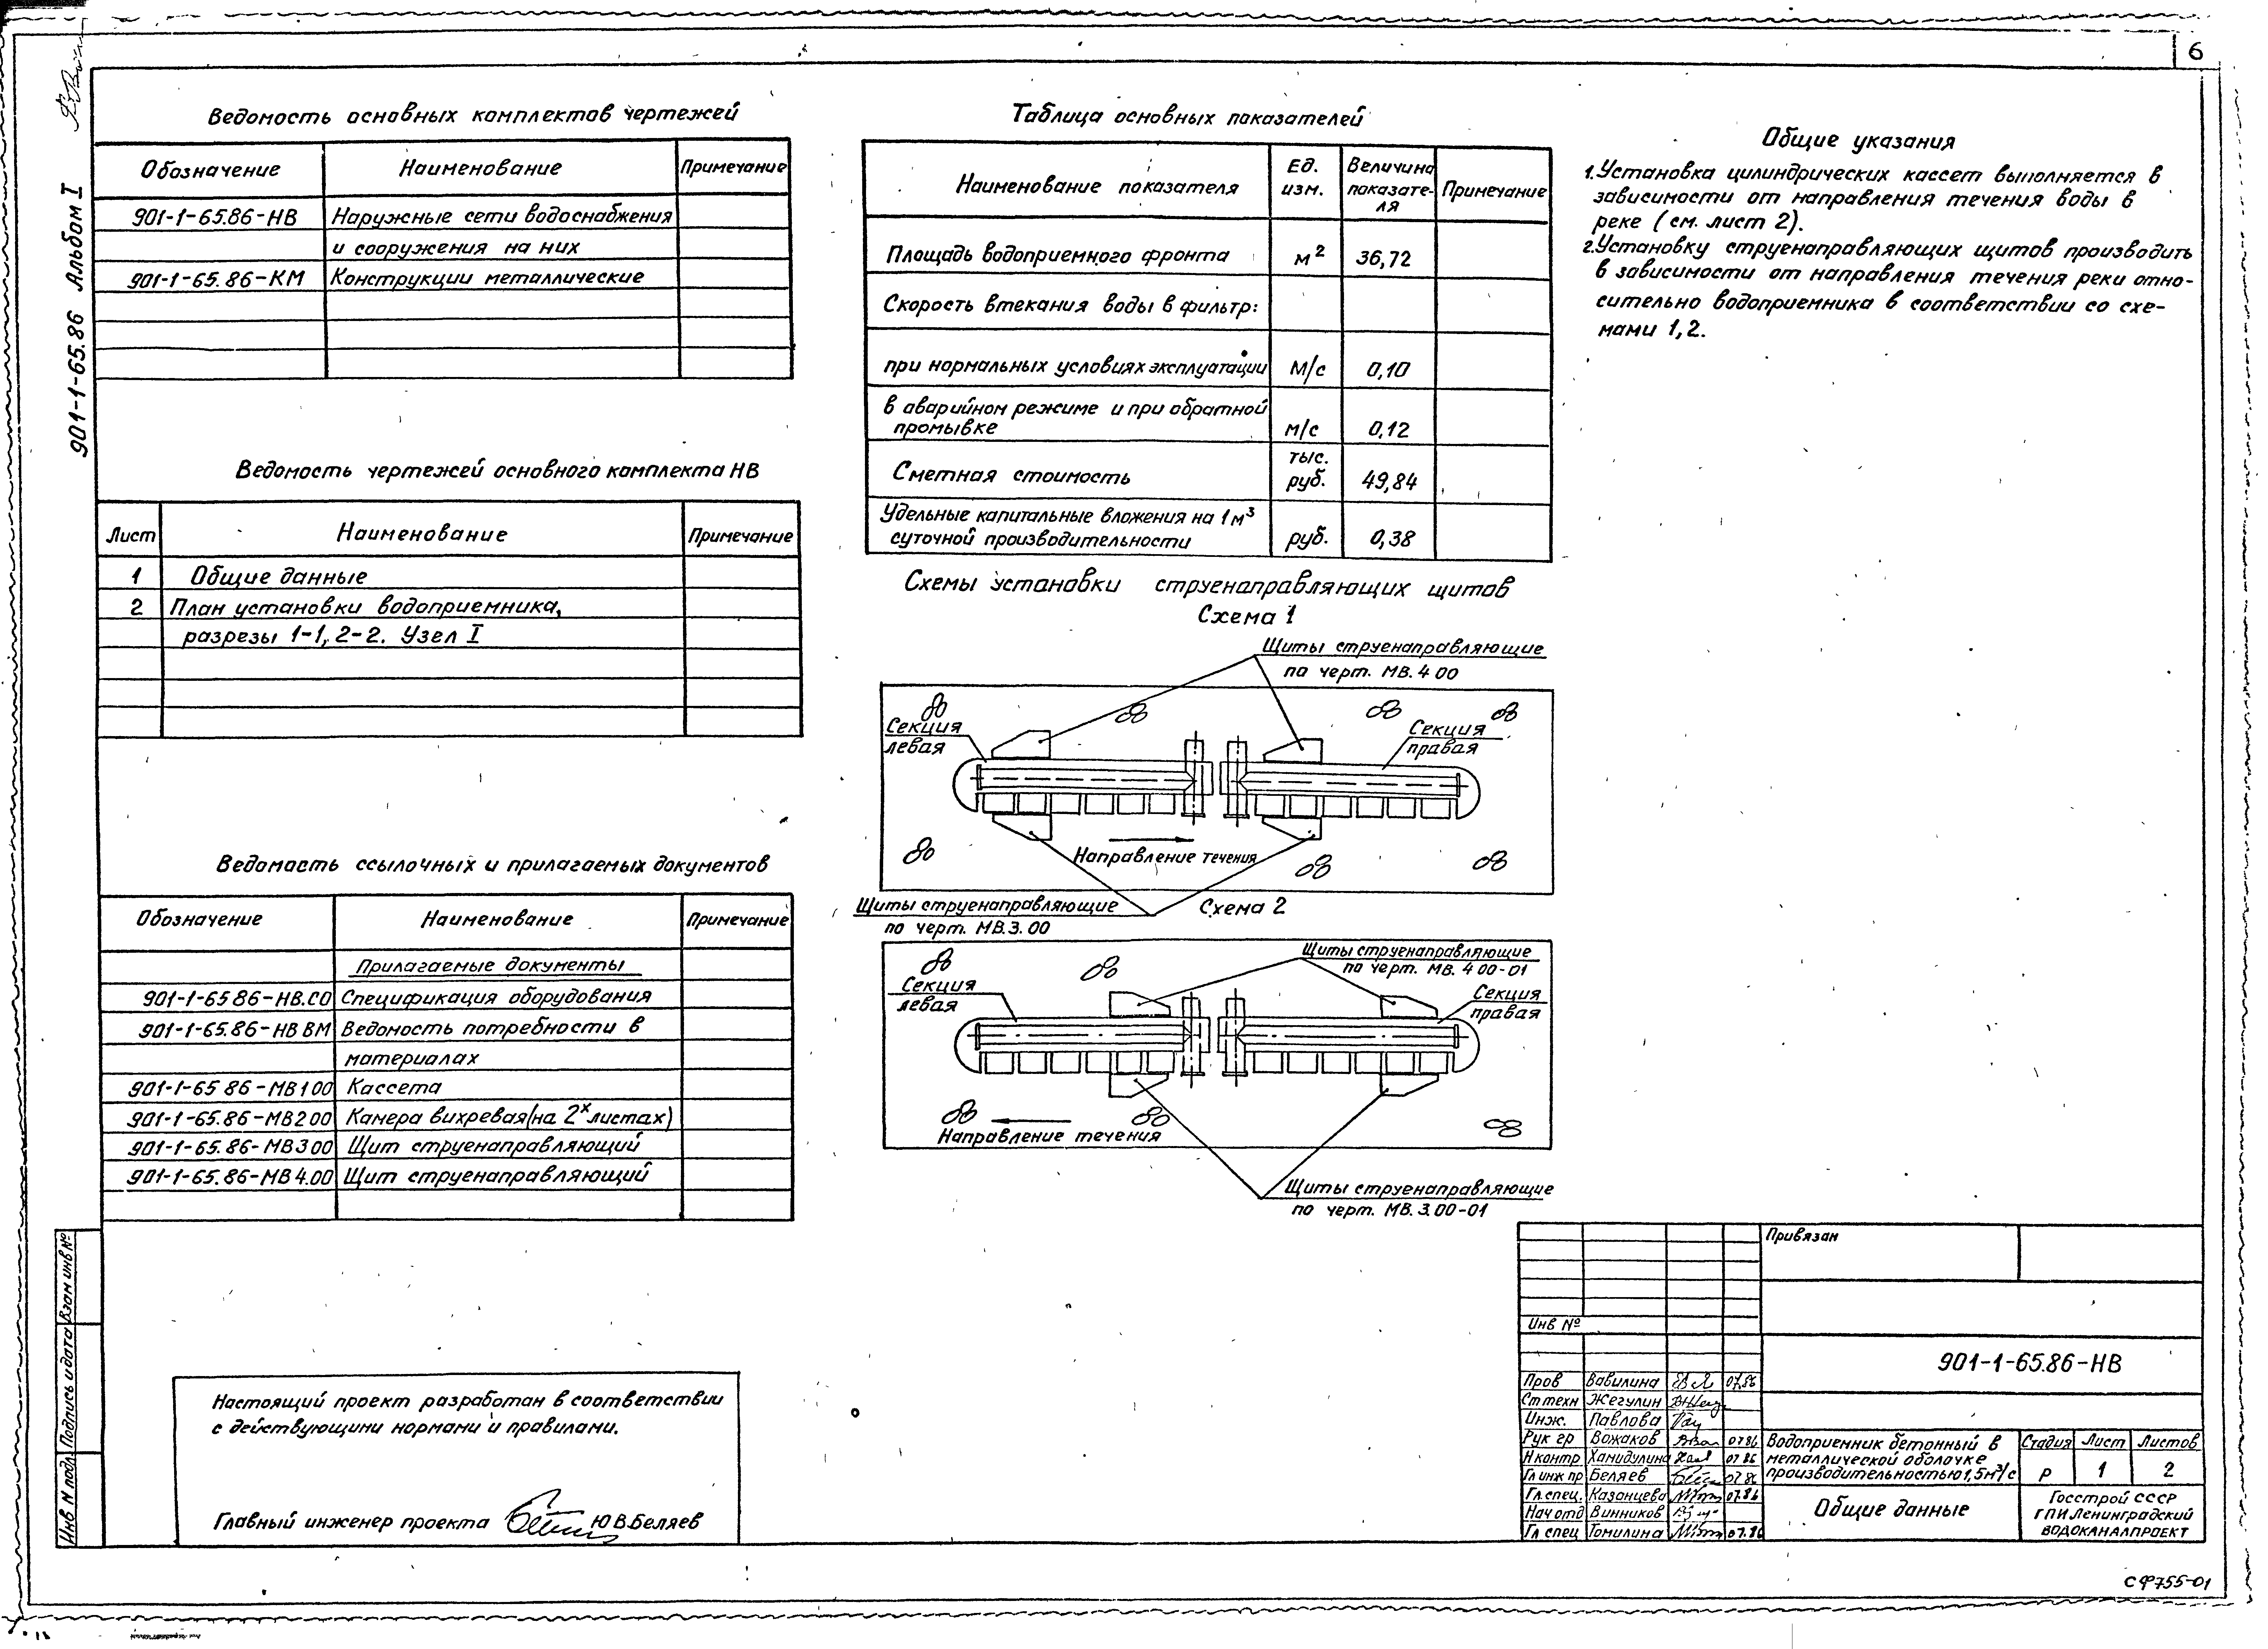 6
901-1-65.86 Альбом I
Ведомость основных комплектов чертежей
Обозначение Наименование Примечание
901-1-65.86-НВ Наружные сети водоснабжения
и сооружения на них
901-1-65.86-КМ Конструкции металлические
Ведомость чертежей основного комплекта НВ
Лист Наименование Примечание
1 Общие данные
2 План установки водоприемника,
разрезы 1-1, 2-2. Узел I
Ведомасть ссылочных и прилагаемых документов
Обозначение Наименование Примечание
Прилагаемые документы
901-1-65 86-НВ.СО Спецификация оборудования
901-1-65.86-НВ ВМ Ведомость потребности в
материалах
901-1-65 86-МВ100 Кассета
901-1-65.86-МВ200 Камера вихревая (на 2х листах)
901-1-65.86-МВ300 Щит струенаправляющий
901-1-65.86-МВ4.00 Щит струенаправляющий
Настоящий проект разработан в соответствии
с действующими нормами и правилами.
Главный инженер проекта Ю В.Беляев
Инв N подл. Подпись и дата Взам инв №
Таблица основных показателей
Наименование показателя Ед. изм. Величина показате-ля Примечание
Площадь водоприемного фронта м² 36,72
Скорость втекания воды в фильтр:
при нормальных условиях эксплуатации м/с 0,10
в аварийном режиме и при обратной
промывке м/с 0,12
Сметная стоимость тыс. руб. 49,84
Удельные капитальные вложения на 1м³
суточной производительности руб. 0,38
Схемы установки струенаправляющих щитов
Схема 1
Щиты струенаправляющие
по черт. МВ.4 00
Секция
левая
Секция
правая
Направление течения
Щиты струенаправляющие
по черт. МВ.3.00
Схема 2
Щиты струенаправляющие
по черт. МВ. 4 00-01
Секция
левая
Секция
правая
Направление течения
Щиты струенаправляющие
по черт. МВ.3.00-01
Общие указания
1.Установка цилиндрических кассет выполняется в
зависимости от направления течения воды в
реке (см. лист 2).
2.Установку струенаправляющих щитов производить
в зависимости от направления течения реки отно-
сительно водоприемника в соответствии со схе-
мами 1,2.
Привязан
Инв №
901-1-65.86-НВ
Пров Вавилина 07.86
Ст техн Жегулин
Инж. Павлова
Рук гр Вожаков 07 86
Н контр Хамидулина 07 86
Гл инж пр Беляев 07.86
Гл. спец. Казанцева 07.86
Нач отд Винников
Гл спец Томилина 07.86
Водоприемник бетонный в
металлической оболочке
производительностью 1,5м³/с
Стадия Лист Листов
Р 1 2
Общие данные
Госстрой СССР
ГПИ Ленинградский
ВОДОКАНАЛПРОЕКТ
СФ755-01